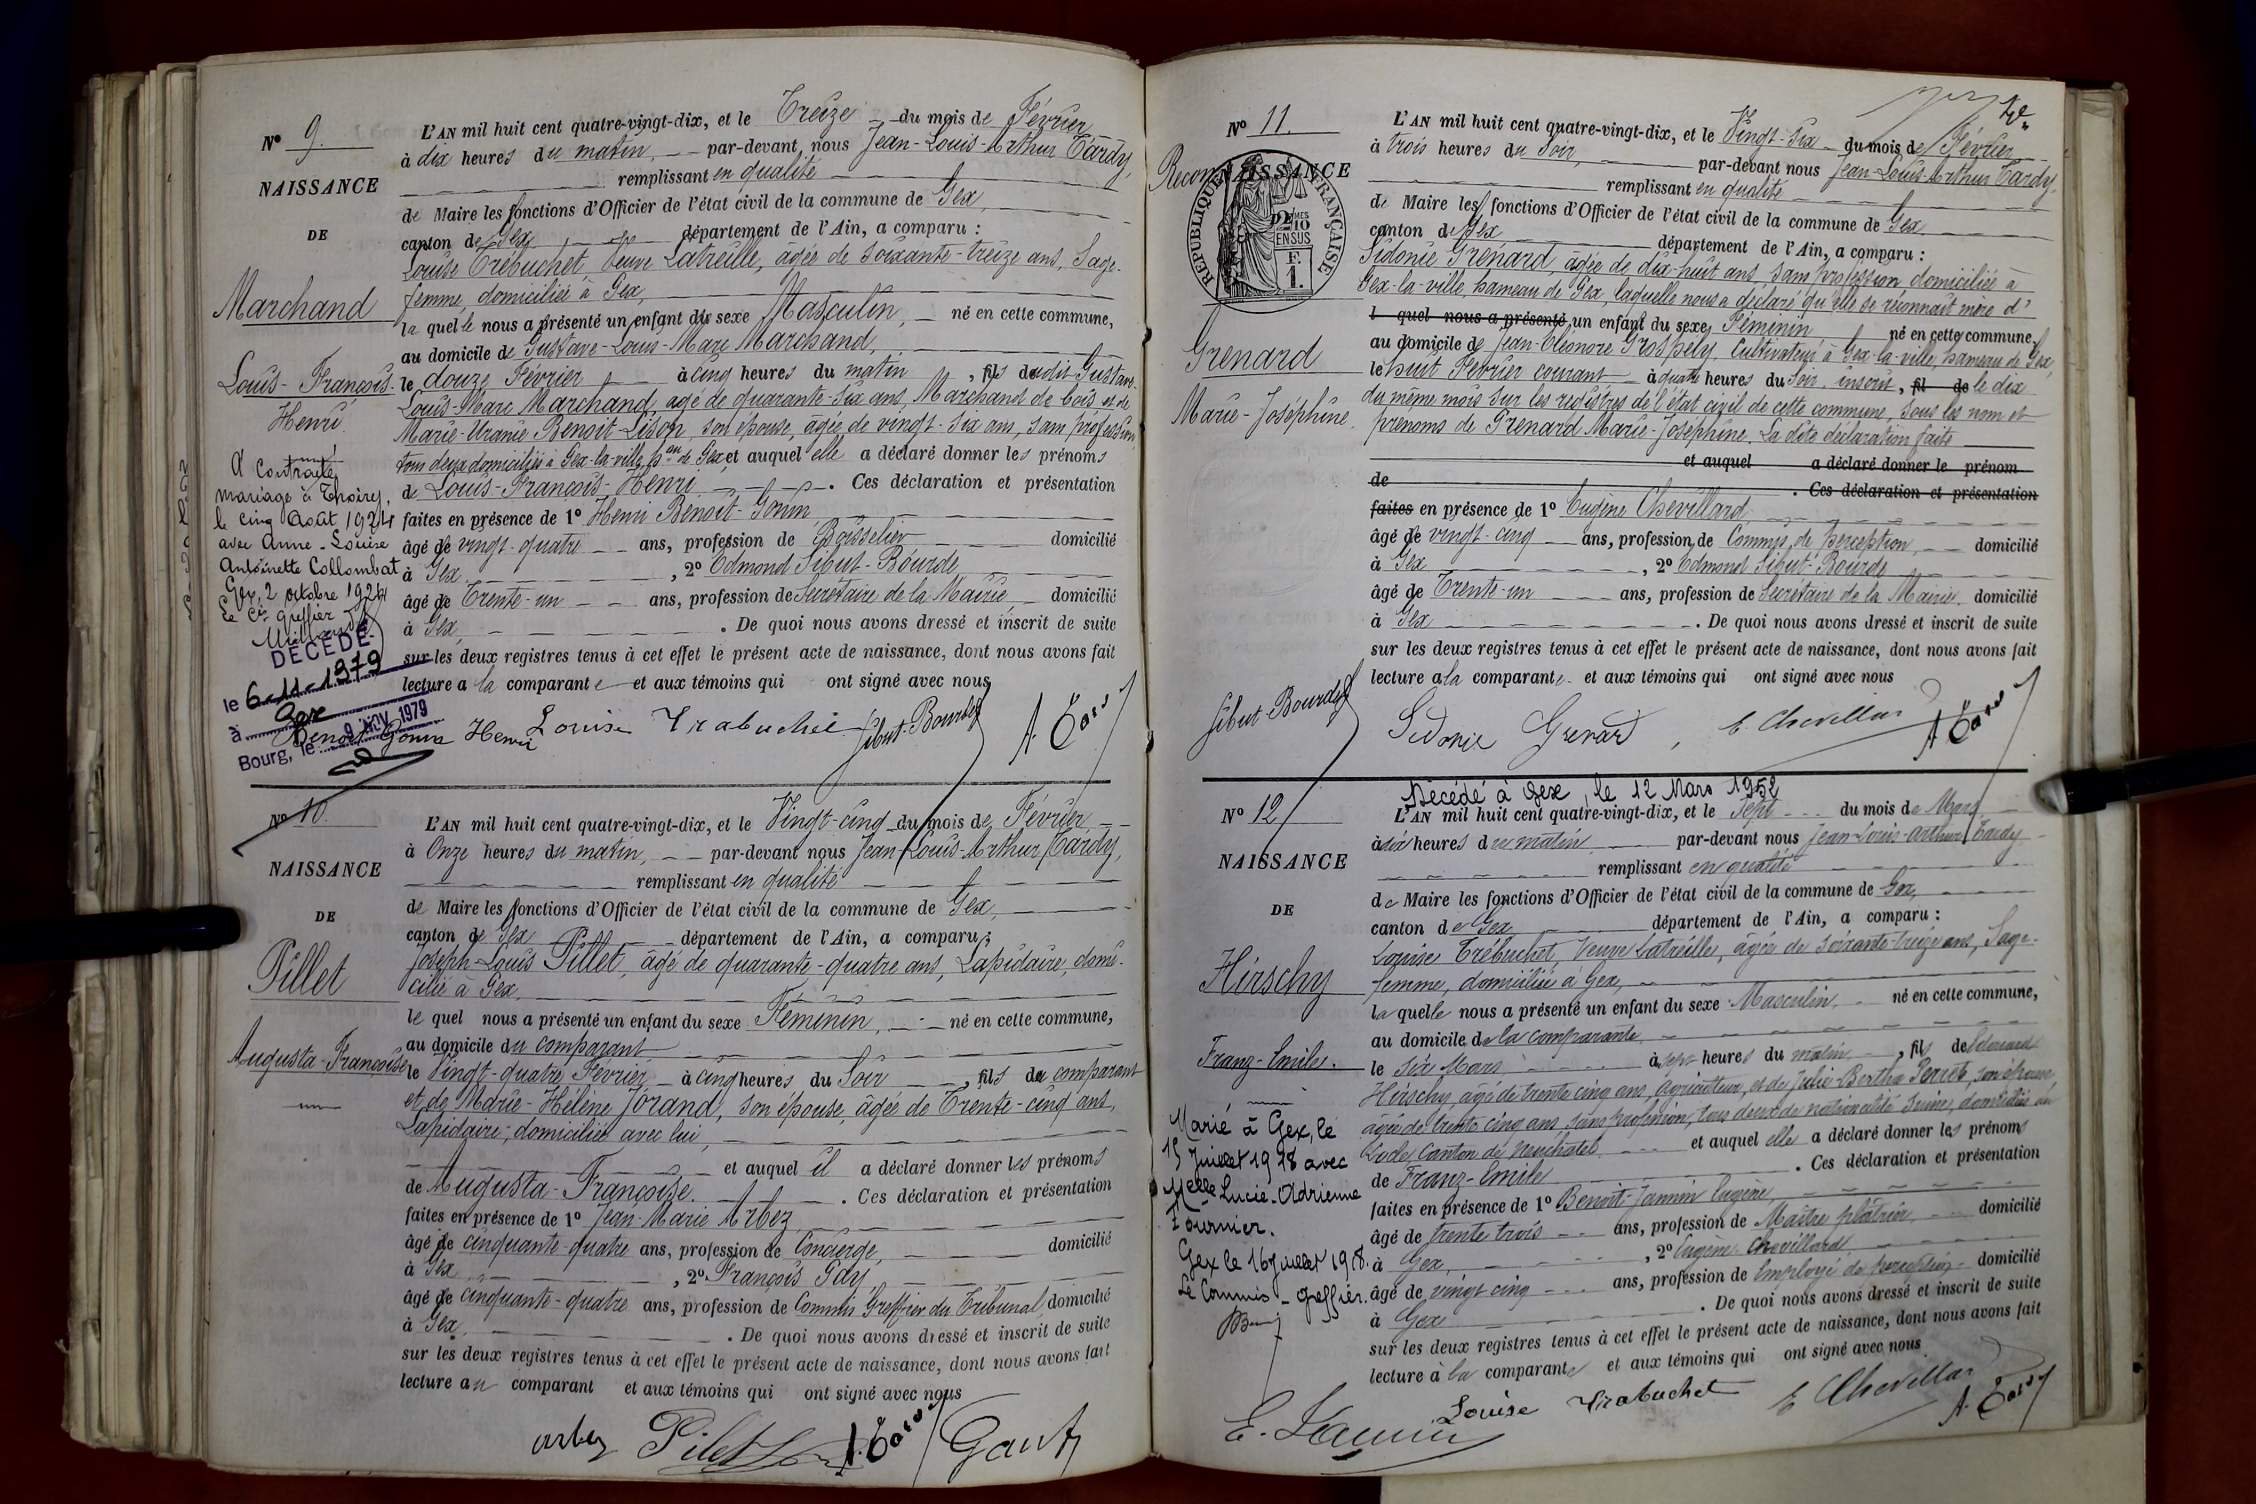 N° 9.
NAISSANCE
DE
Marchand
Louis-François-
Henri
A contracté
mariage à Thoiry,
le cinq Août 1924
avec Anne-Louise
Antoinette Collombat
Gex, 2 octobre 1924
Le Cis greffier
DÉCÉDÉ
le 6-11-1979
à Gex
Bourg, le 9 NOV. 1979
L'AN mil huit cent quatre-vingt-dix, et le Treize du mois de Février
à dix heures du matin, par-devant nous Jean-Louis-Arthur Tardy,
remplissant en qualité
de Maire les fonctions d'Officier de l'état civil de la commune de Gex,
canton de Gex, département de l'Ain, a comparu :
Louise Trébuchet, Veuve Latreille, âgée de soixante-treize ans, Sage-
femme, domiciliée à Gex,
laquelle nous a présenté un enfant du sexe Masculin, né en cette commune,
au domicile de Gustave-Louis-Marc Marchand,
le douze Février à cinq heures du matin, fils dudit Gustave-
Louis-Marc Marchand, âgé de quarante-six ans, Marchand de bois et de
Marie-Uranie Benoit-Lison, son épouse, âgée de vingt-six ans, sans profession,
tous deux domiciliés à Gex-la-ville, hau de Gex et auquel elle a déclaré donner les prénoms
de Louis-François-Henri. Ces déclaration et présentation
faites en présence de 1° Henri Benoit-Gonin
âgé de vingt-quatre ans, profession de Boisselier domicilié
à Gex, 2° Edmond Sibut-Bourde
âgé de Trente-un ans, profession de Secrétaire de la Mairie, domicilié
à Gex. De quoi nous avons dressé et inscrit de suite
sur les deux registres tenus à cet effet le présent acte de naissance, dont nous avons fait
lecture a la comparante et aux témoins qui ont signé avec nous
Benoit Gonin Henri Louise Trabuchet Sibut-Bourde A. Tardy
N° 10.
NAISSANCE
DE
Pillet
Augusta-Françoise
L'AN mil huit cent quatre-vingt-dix, et le Vingt-cinq du mois de Février
à Onze heures du matin, par-devant nous Jean-Louis-Arthur Tardy,
remplissant en qualité
de Maire les fonctions d'Officier de l'état civil de la commune de Gex,
canton de Gex département de l'Ain, a comparu :
Joseph-Louis Pillet, âgé de quarante-quatre ans, Lapidaire, domi-
cilié à Gex,
lequel nous a présenté un enfant du sexe Féminin, né en cette commune,
au domicile du comparant
le Vingt-quatre Février à cinq heures du Soir, fils du comparant
et de Marie-Hélène Jorand, son épouse, âgée de Trente-cinq ans,
Lapidaire, domiciliée avec lui,
et auquel il a déclaré donner les prénoms
de Augusta-Françoise. Ces déclaration et présentation
faites en présence de 1° Jean-Marie Arbez
âgé de cinquante-quatre ans, profession de Concierge, domicilié
à Gex, 2° François Gay
âgé de cinquante-quatre ans, profession de Commis Greffier du Tribunal, domicilié
à Gex. De quoi nous avons dressé et inscrit de suite
sur les deux registres tenus à cet effet le présent acte de naissance, dont nous avons fait
lecture au comparant et aux témoins qui ont signé avec nous
arbez Pilet A. Tardy
N° 11.
Reconnaissance
RÉPUBLIQUE FRANÇAISE
2/10 EN SUS
F. 1.
Grenard
Marie-Joséphine.
L'AN mil huit cent quatre-vingt-dix, et le Vingt-Six du mois de Février
à trois heures du Soir, par-devant nous Jean-Louis-Arthur Tardy,
remplissant en qualité
de Maire les fonctions d'Officier de l'état civil de la commune de Gex
canton de Gex département de l'Ain, a comparu :
Sidonie Grenard, âgée de dix-huit ans, sans profession, domiciliée à
Gex-la-ville, hameau de Gex, laquelle nous a déclaré qu'elle se reconnaît mère d'
l quel nous a présenté un enfant du sexe Féminin né en cette commune,
au domicile de Jean-Eléonore Grospély, Cultivateur à Gex-la-ville, hameau de Gex,
le huit Février courant à quatre heures du Soir, inscrit, fil de le dix
du même mois sur les registres de l'état civil de cette commune, sous les nom et
prénoms de Grenard Marie-Joséphine. La dite déclaration faite
et auquel a déclaré donner le prénom
de . Ces déclaration et présentation
faites en présence de 1° Eugène Chevillard,
âgé de vingt-cinq ans, profession de Commis de perception, domicilié
à Gex, 2° Edmond Sibut-Bourde
âgé de Trente-un ans, profession de Secrétaire de la Mairie, domicilié
à Gex. De quoi nous avons dressé et inscrit de suite
sur les deux registres tenus à cet effet le présent acte de naissance, dont nous avons fait
lecture a la comparante et aux témoins qui ont signé avec nous
Sibut-Bourde Sidonie Grenard, E. Chevillard A. Tardy
Décédé à Gex, le 12 Mars 1952
N° 12
NAISSANCE
DE
Hirschy
Franz-Emile.
Marié à Gex, le
15 Juillet 1918 avec
Melle Lucie-Adrienne
Fournier.
Gex le 16 juillet 1918.
Le Commis-Greffier.
L'AN mil huit cent quatre-vingt-dix, et le Sept du mois de Mars
à dix heures du matin par-devant nous Jean-Louis-Arthur Tardy
remplissant en qualité
de Maire les fonctions d'Officier de l'état civil de la commune de Gex,
canton de Gex département de l'Ain, a comparu :
Louise Trébuchet, Veuve Latreille, âgée de soixante-treize ans, Sage-
femme, domiciliée à Gex,
laquelle nous a présenté un enfant du sexe Masculin, né en cette commune,
au domicile de la comparante
le Six Mars à sept heures du matin, fils de Edouard
Hirschy, âgé de trente cinq ans, agriculteur, et de Julie-Bertha, son épouse
âgée de trente cinq ans, sans profession, tous deux de nationalité Suisse, domiciliés au
Locle Canton de Neuchatel et auquel elle a déclaré donner les prénoms
de Franz-Emile. Ces déclaration et présentation
faites en présence de 1° Benoit-Jannin Eugène,
âgé de trente trois ans, profession de Maître plâtrier domicilié
à Gex, 2° Eugène Chevillard
âgé de vingt cinq ans, profession de Employé de perception domicilié
à Gex. De quoi nous avons dressé et inscrit de suite
sur les deux registres tenus à cet effet le présent acte de naissance, dont nous avons fait
lecture à la comparante et aux témoins qui ont signé avec nous
E. Jannin Louise Trabuchet E. Chevillard A. Tardy